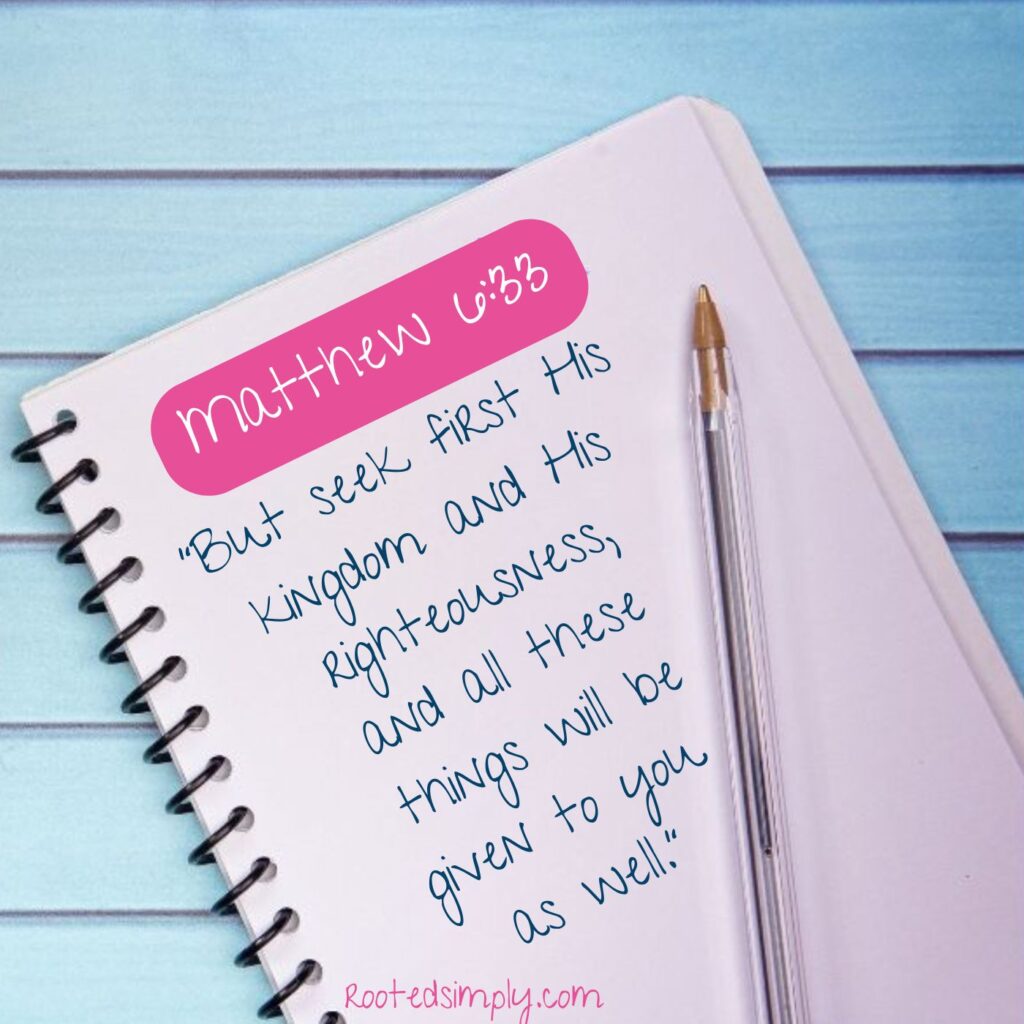 Matthew 6:33
"But seek first His
Kingdom and His
Righteousness,
and all these
things will be
given to you
as well."
Rootedsimply.com